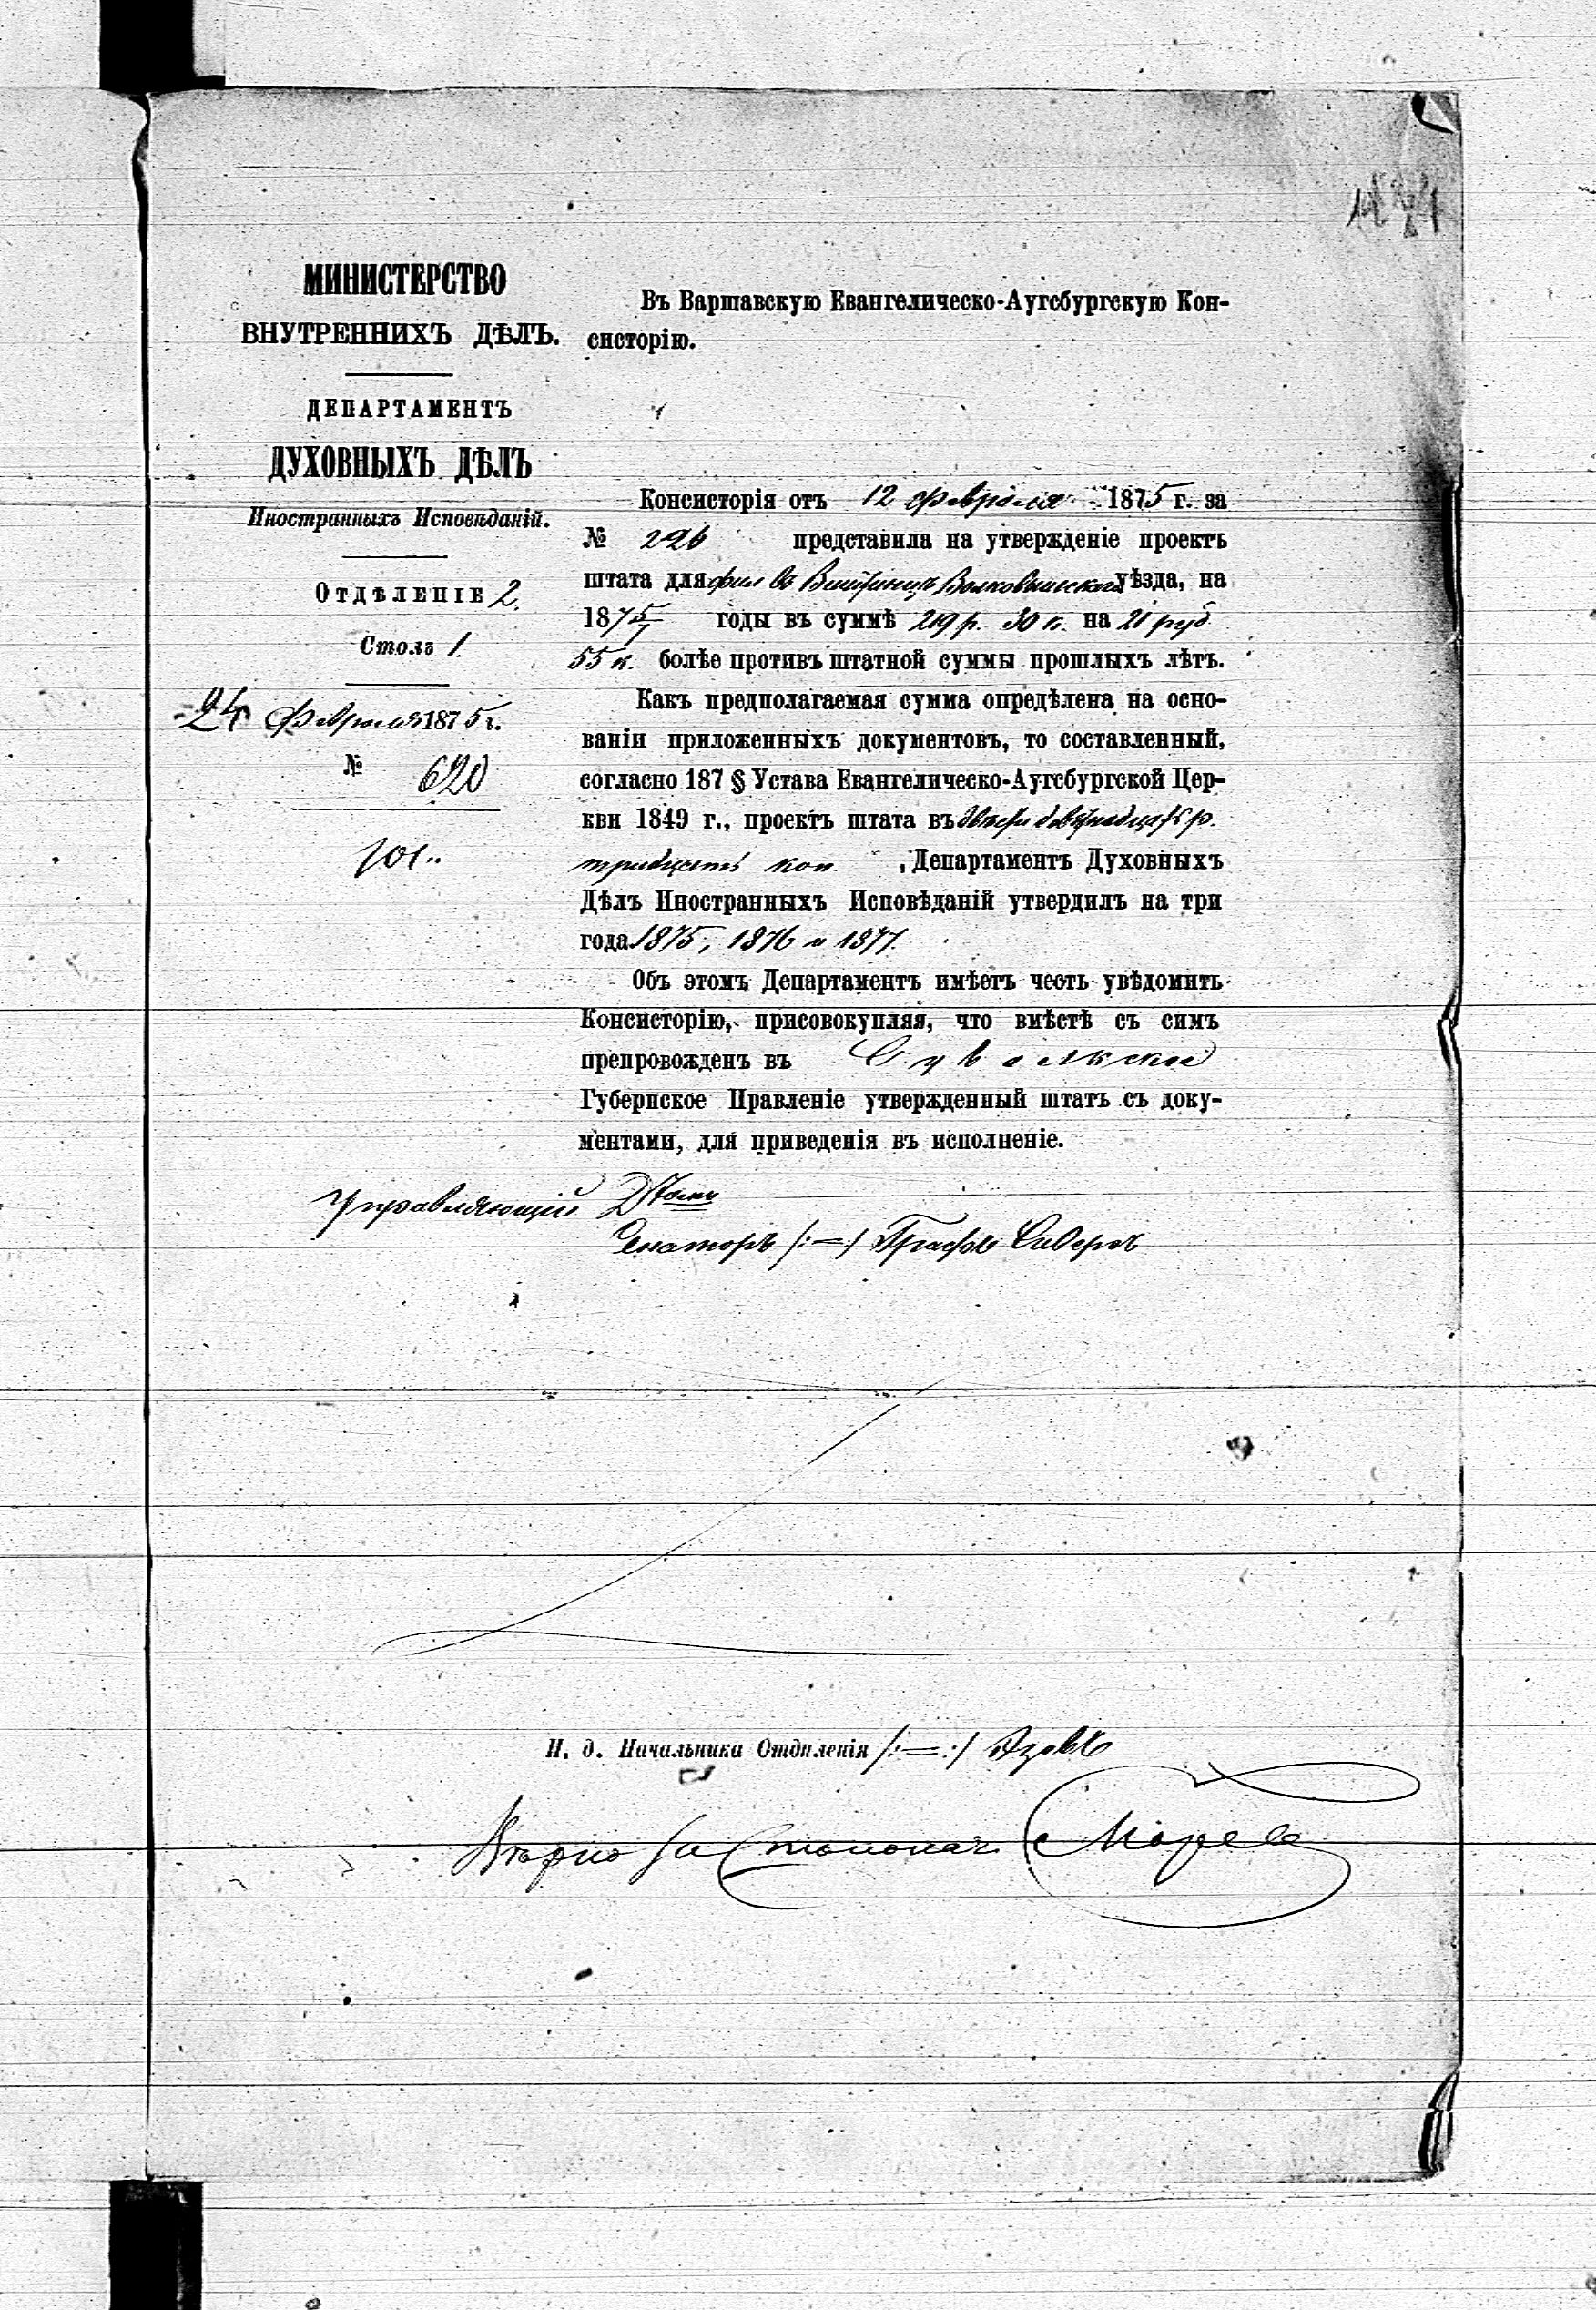 МИНИСТЕРСТВО
ВНУТРЕННИХЪ ДѢЛЪ.
ДЕПАРТАМЕНТЪ
ДУХОВНЫХЪ ДѢЛЪ
Иностранныхъ Исповѣданій.
ОТДѢЛЕНІЕ 2.
Столъ 1.
24 февраля 1875 г.
№ 620
101
Въ Варшавскую Евангелическо-Аугсбургскую Кон-
систорію.
Консисторія отъ 12 февраля 1875 г. за
№ 226 представила на утвержденіе проектъ
штата для фил въ Волковышскаго уѣзда, на
1875/7 годы въ суммѣ 219 р. 30 к. на 21 руб
55 к. болѣе противъ штатной суммы прошлыхъ лѣтъ.
Какъ предполагаемая сумма опредѣлена на осно-
ваніи приложенныхъ документовъ, то составленный,
согласно 187 § Устава Евангелическо-Аугсбургской Цер-
кви 1849 г., проектъ штата въ двѣсти девятнадцать р.
тридцать коп. , Департаментъ Духовныхъ
Дѣлъ Иностранныхъ Исповѣданій утвердилъ на три
года 1875, 1876 и 1877.
Объ этомъ Департаментъ имѣетъ честь увѣдомить
Консисторію, присовокупляя, что вмѣстѣ съ симъ
препровожденъ въ Сувалкское
Губернское Правленіе утвержденный штатъ съ доку-
ментами, для приведенія въ исполненіе.
Управляющій Д-томъ
Сенаторъ /:=:/ Графъ Сиверсъ
И. д. Начальника Отдѣленія /:=:/
Вѣрно Столонач.